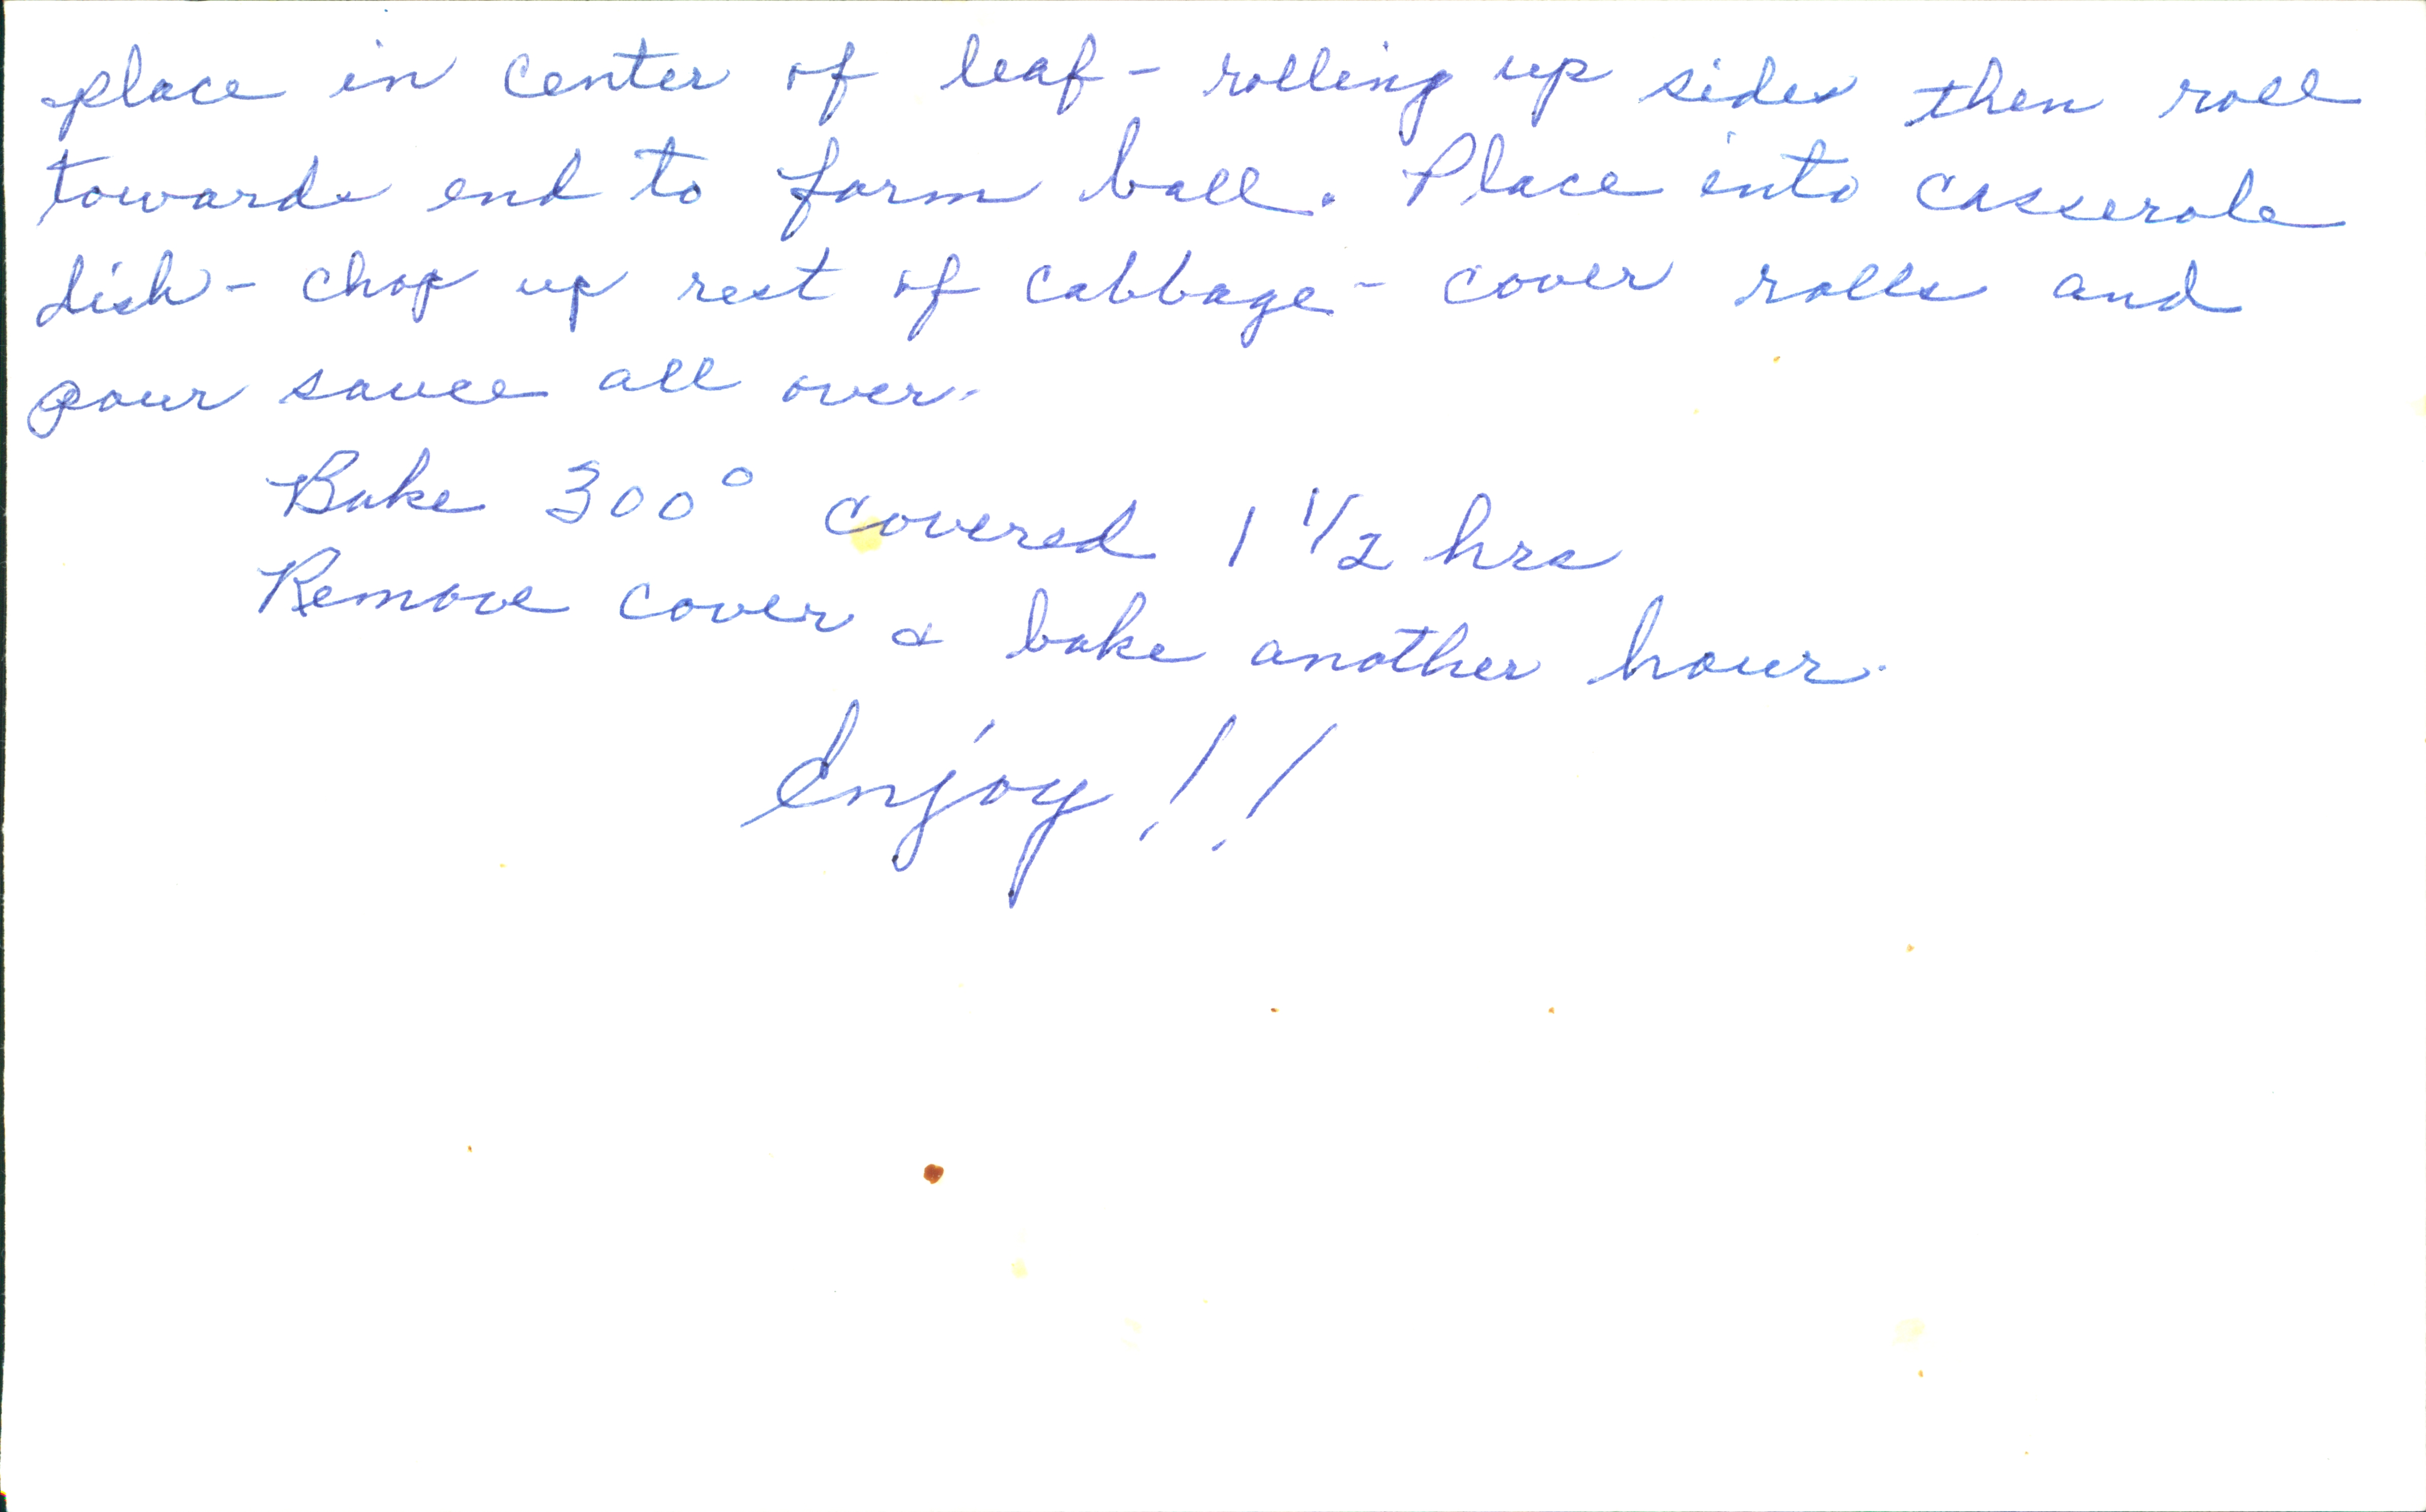 place in center of leaf - rolling up sides then roll
towards end to form ball. Place into casserole
dish - chop up rest of cabbage - cover rolls and
pour sauce all over.
Bake 300° covered 1 1/2 hrs
Remove cover & bake another hour.
Enjoy!!